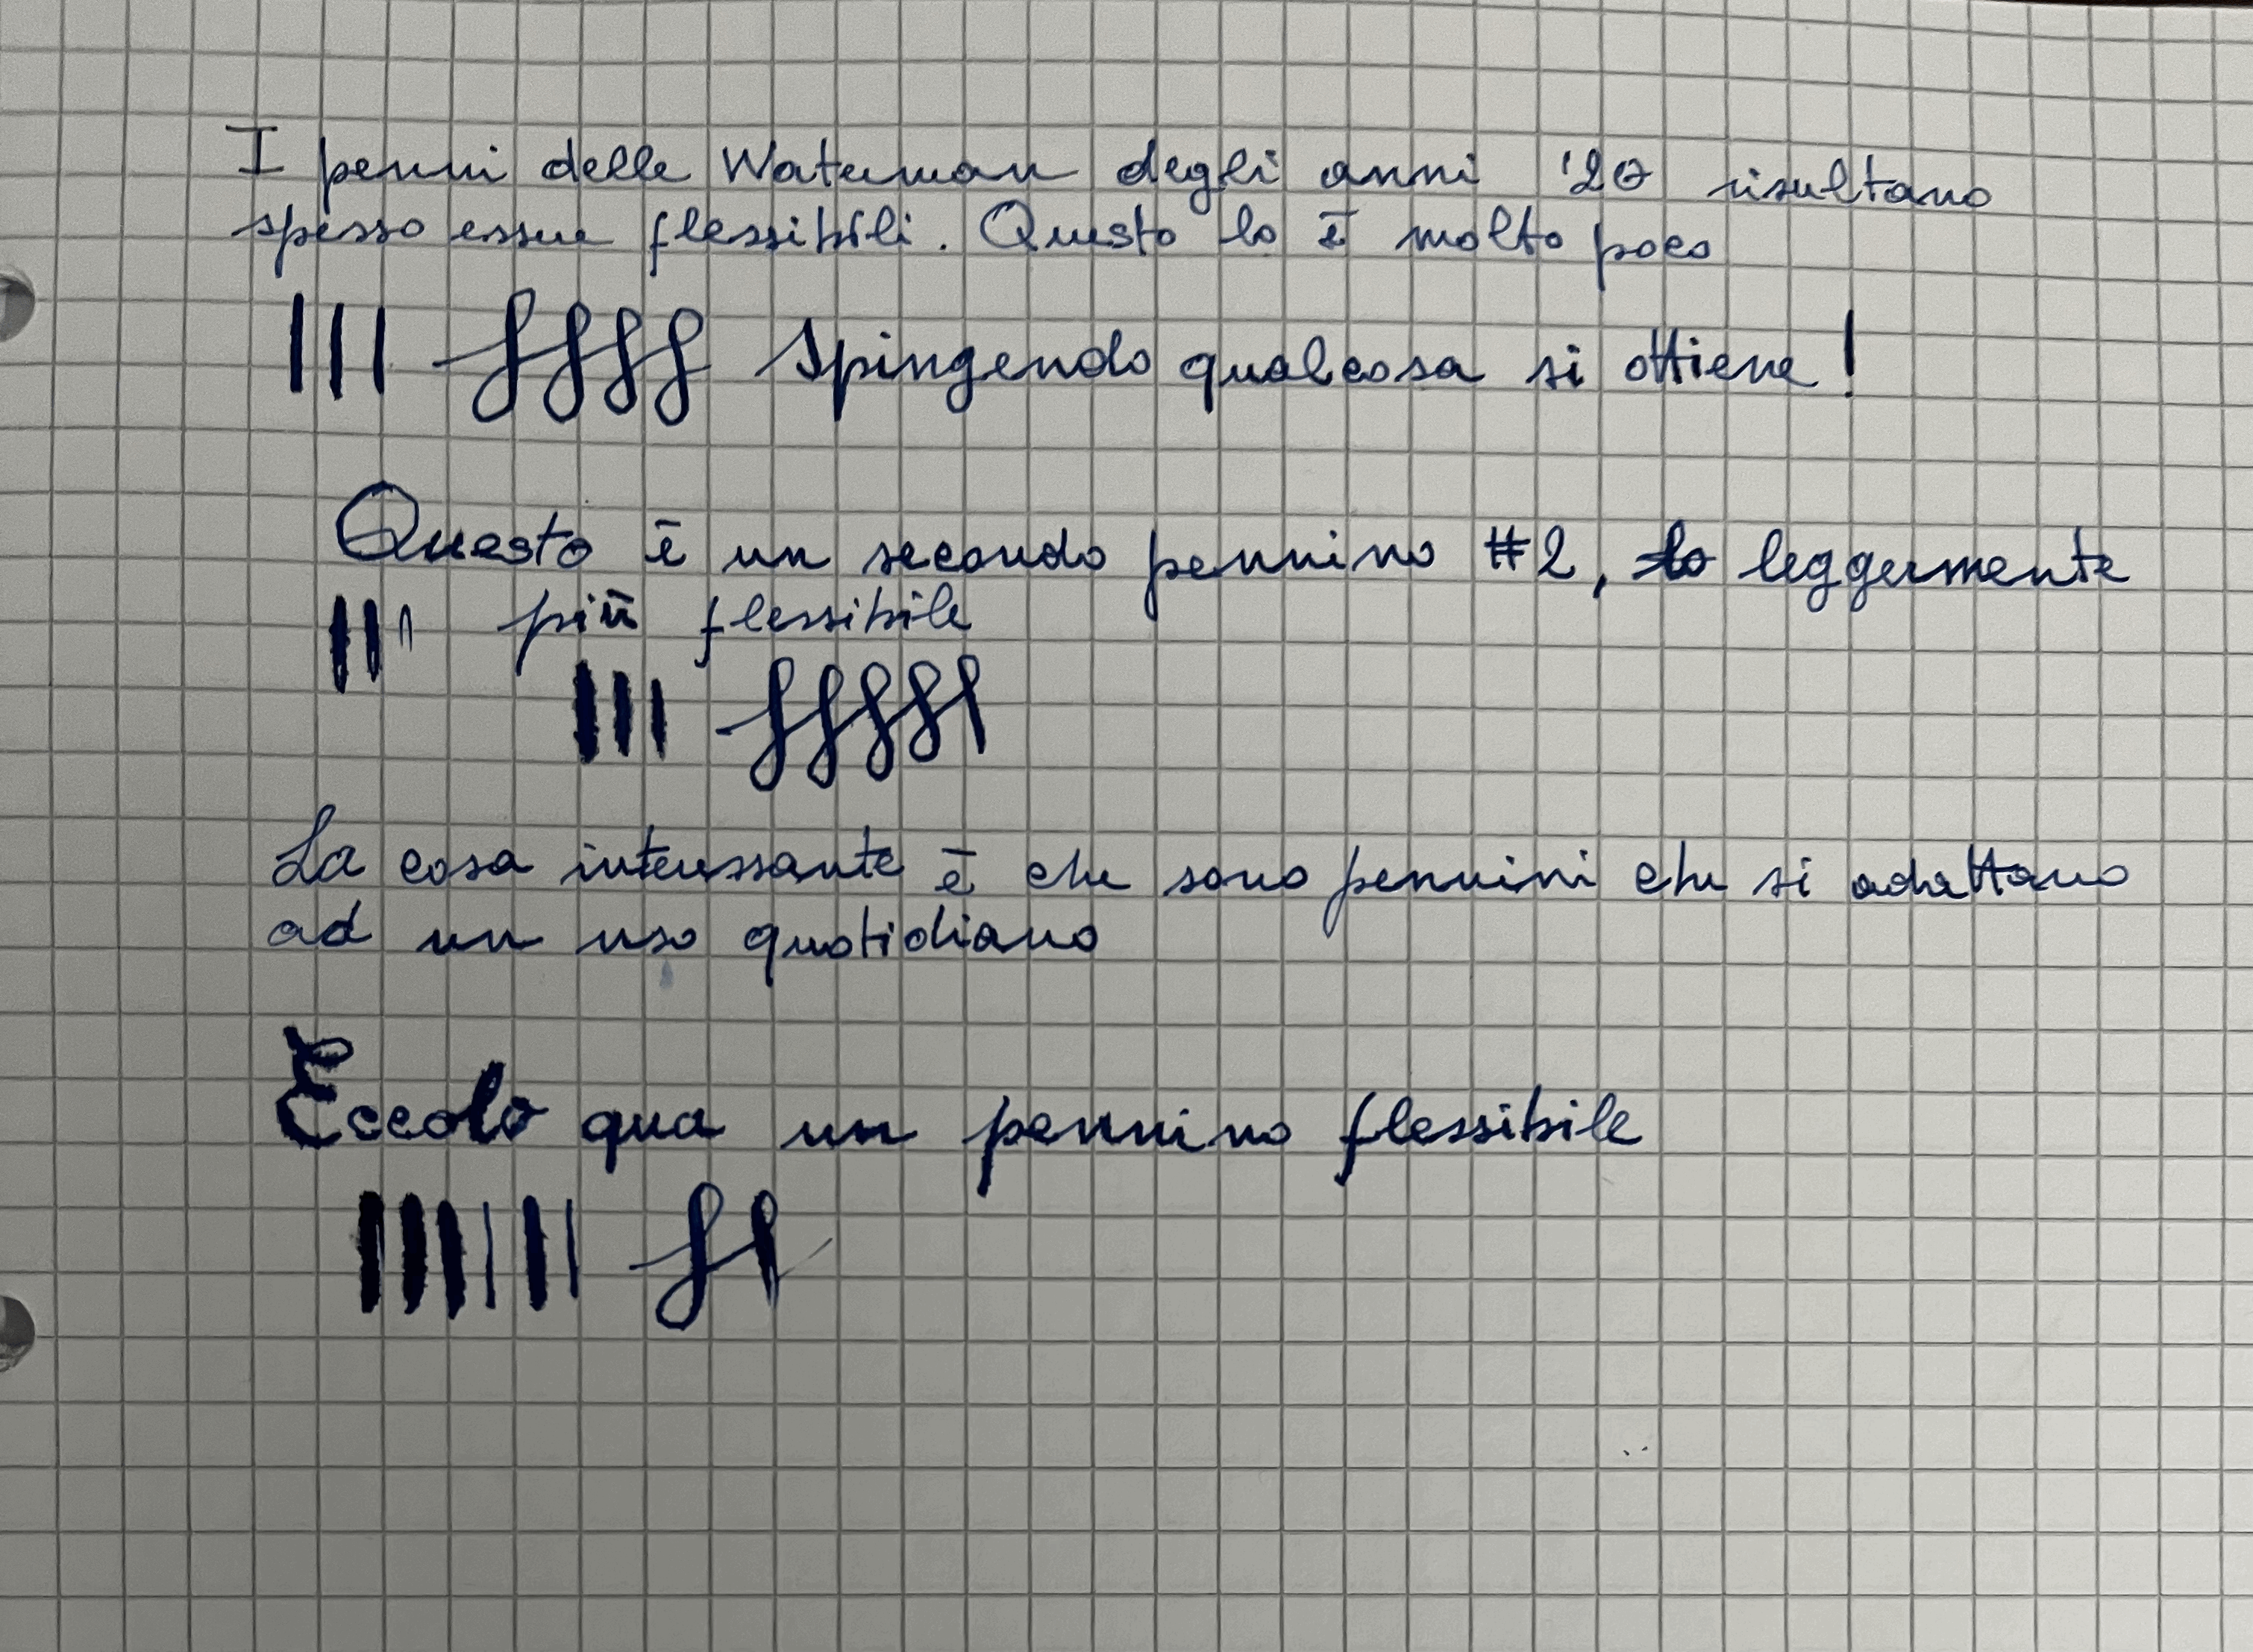 I penni delle Waterman degli anni '20 risultano
spesso essere flessibili. Questo lo è molto poco
Spingendo qualcosa si ottiene!
Questo è un secondo pennino #2, leggermente
più flessibile
La cosa interessante è che sono pennini che si adattano
ad un uso quotidiano
Eccolo qua un pennino flessibile